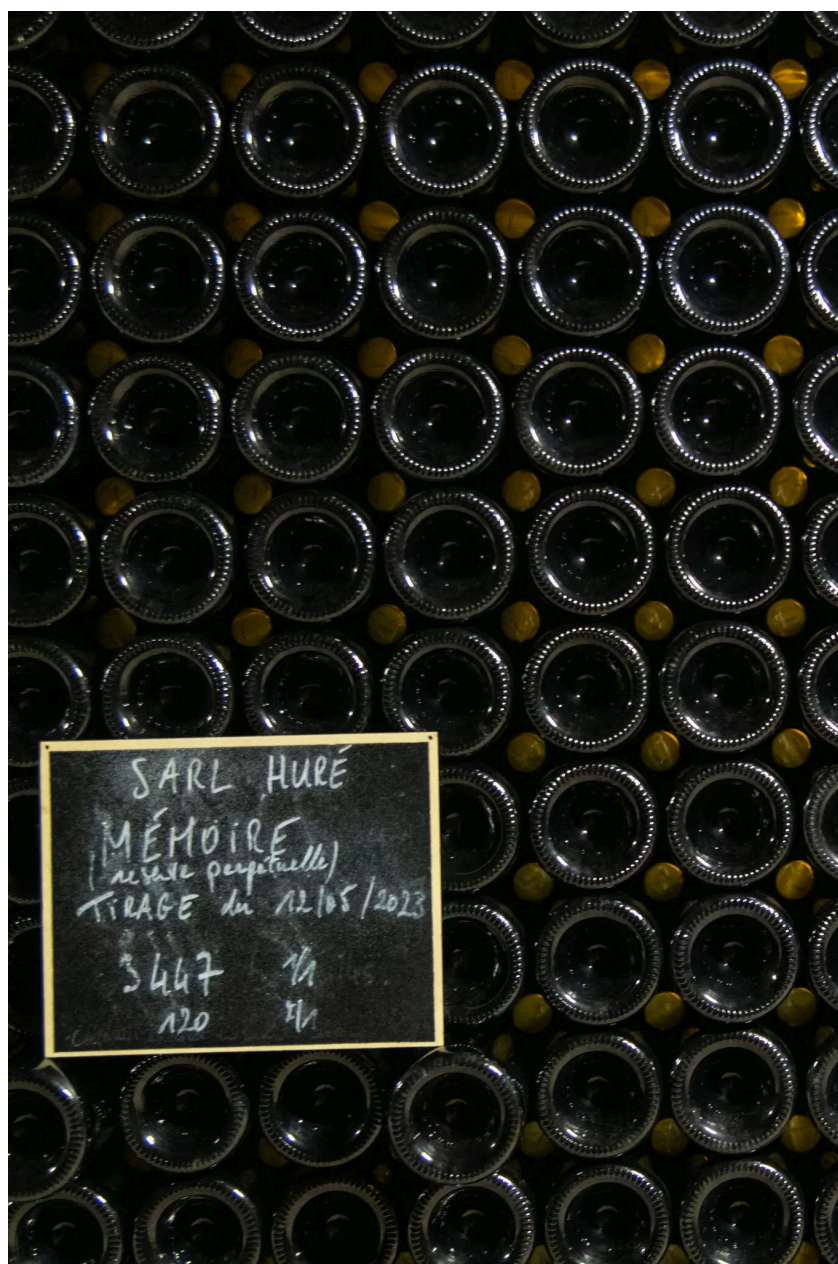 SARL HURÉ
MÉMOIRE
(réserve perpétuelle)
TIRAGE du 12/05/2023
3447 1/1
120 1/1